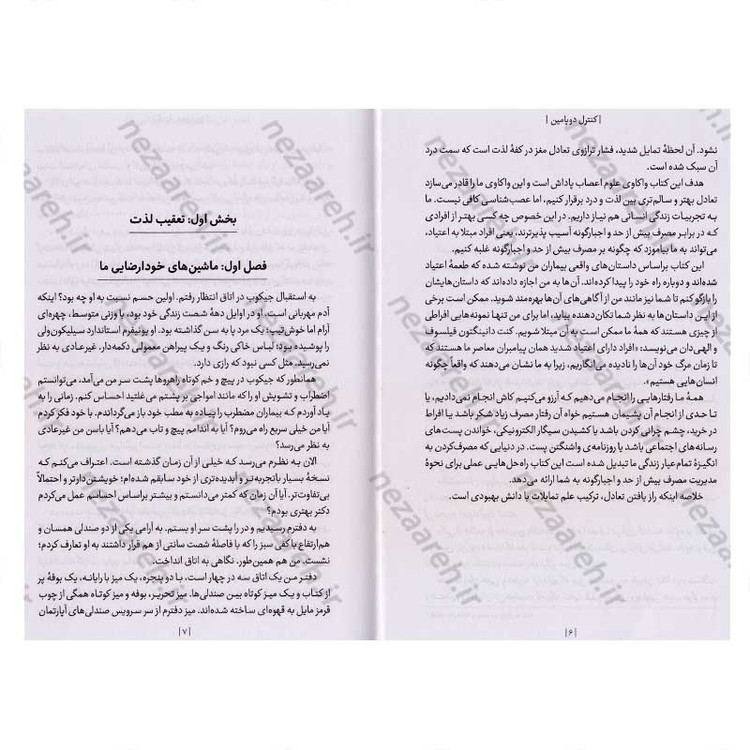 |کنترل دوپامین|
نشود. آن لحظهٔ تمایل شدید، فشار ترازوی تعادل مغز در کفهٔ لذت است که سمت درد
آن سبک شده است.
هدف این کتاب واکاوی علوم اعصاب پاداش است و این واکاوی ما را قادر می‌سازد
تعادل بهتر و سالم‌تری بین لذت و درد برقرار کنیم، اما عصب‌شناسی کافی نیست. ما
به تجربیات زندگی انسانی هم نیاز داریم. در این خصوص چه کسی بهتر از افرادی
که در برابر مصرف بیش از حد و اجبارگونه آسیب پذیرترند، یعنی افراد مبتلا به اعتیاد،
می‌تواند به ما بیاموزد که چگونه بر مصرف بیش از حد و اجبارگونه غلبه کنیم.
این کتاب براساس داستان‌های واقعی بیماران من نوشته شده که طعمهٔ اعتیاد
شده‌اند و دوباره راه خود را پیدا کرده‌اند. آن‌ها به من اجازه داده‌اند که داستان‌هایشان
را بازگو کنم تا شما نیز مانند من از آگاهی‌های آن‌ها بهره‌مند شوید. ممکن است برخی
از این داستان‌ها به نظر شما تکان‌دهنده بیاید، اما برای من تنها نمونه‌هایی افراطی
از چیزی هستند که همهٔ ما ممکن است به آن مبتلا شویم. کنت دانینگتون فیلسوف
و الهی‌دان می‌نویسد: «افراد دارای اعتیاد شدید همان پیامبران معاصر ما هستند که
تا زمان مرگ خود آن‌ها را نادیده می‌انگاریم، زیرا به ما نشان می‌دهند که واقعاً چگونه
انسان‌هایی هستیم.»
همهٔ ما رفتارهایی را انجام می‌دهیم که آرزو می‌کنیم کاش انجام نمی‌دادیم، یا
تا حدی از انجام آن پشیمان هستیم خواه آن رفتار مصرف زیاد شکر باشد یا افراط
در خرید، چشم چرانی کردن باشد یا کشیدن سیگار الکترونیکی، خواندن پست‌های
رسانه‌های اجتماعی باشد یا روزنامه‌ی واشنگتن پست. در دنیایی که مصرف‌کردن به
انگیزهٔ تمام عیار زندگی ما تبدیل شده است این کتاب راه‌حل‌هایی عملی برای نحوهٔ
مدیریت مصرف بیش از حد و اجبارگونه به شما ارائه می‌دهد.
خلاصه اینکه راز یافتن تعادل، ترکیب علم تمایلات با دانش بهبودی است.
|۶|
بخش اول: تعقیب لذت
فصل اول: ماشین‌های خودارضایی ما
به استقبال جیکوب در اتاق انتظار رفتم. اولین حسم نسبت به او چه بود؟ اینکه
آدم مهربانی است. او در اوایل دههٔ شصت زندگی خود بود، با وزنی متوسط، چهره‌ای
آرام اما خوش‌تیپ؛ یک مرد پا به سن گذاشته بود. او یونیفرم استاندارد سیلیکون‌ولی
را پوشیده بود: لباس خاکی رنگ و یک پیراهن معمولی دکمه‌دار. غیرعادی به نظر
نمی‌رسید. مثل کسی نبود که رازی دارد.
همانطور که جیکوب در پیچ و خم کوتاه راهروها پشت سر من می‌آمد، می‌توانستم
اضطراب و تشویش او را که مانند امواجی بر پشتم می‌غلتید احساس کنم. زمانی را به
یاد آوردم که بیماران مضطرب را پیاده به مطب خود باز می‌گرداندم. با خود فکر کردم
آیا من خیلی سریع راه می‌روم؟ آیا به اندامم پیچ و تاب می‌دهم؟ آیا باسن من غیرعادی
به نظر می‌رسد؟
الان به نظرم می‌رسد که خیلی از آن زمان گذشته است. اعتراف می‌کنم که
نسخهٔ بسیار باتجربه‌تر و آبدیده‌تری از خود سابقم شده‌ام؛ خویشتن دارتر و احتمالاً
بی‌تفاوت‌تر. آیا آن زمان که کمتر می‌دانستم و بیشتر براساس احساسم عمل می‌کردم
دکتر بهتری بودم؟
به دفترم رسیدیم و در را پشت سر او بستم. به آرامی یکی از دو صندلی همسان و
هم‌ارتفاع با کفی سبز را که با فاصلهٔ شصت سانتی از هم قرار داشتند به او تعارف کردم؛
نشست. من هم همین‌طور. نگاهی به اتاق انداخت.
دفتر من یک اتاق سه در چهار است، با دو پنجره، یک میز با رایانه، یک بوفهٔ پر
از کتاب و یک میز کوتاه بین صندلی‌ها. میز تحریر، بوفه و میز کوتاه همگی از چوب
قرمز مایل به قهوه‌ای ساخته شده‌اند. میز دفترم از سر سرویس صندلی‌های آپارتمان
|۷|
nezaareh.ir
nezaareh.ir
nezaareh.ir
nezaareh.ir
nezaareh.ir
nezaareh.ir